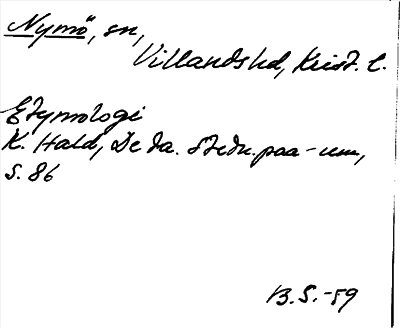 Nymö, sn,
Villandshd, Krist. l.
Etymologi
K. Hald, De da. stedn. paa -um,
S. 86
B.S.-59